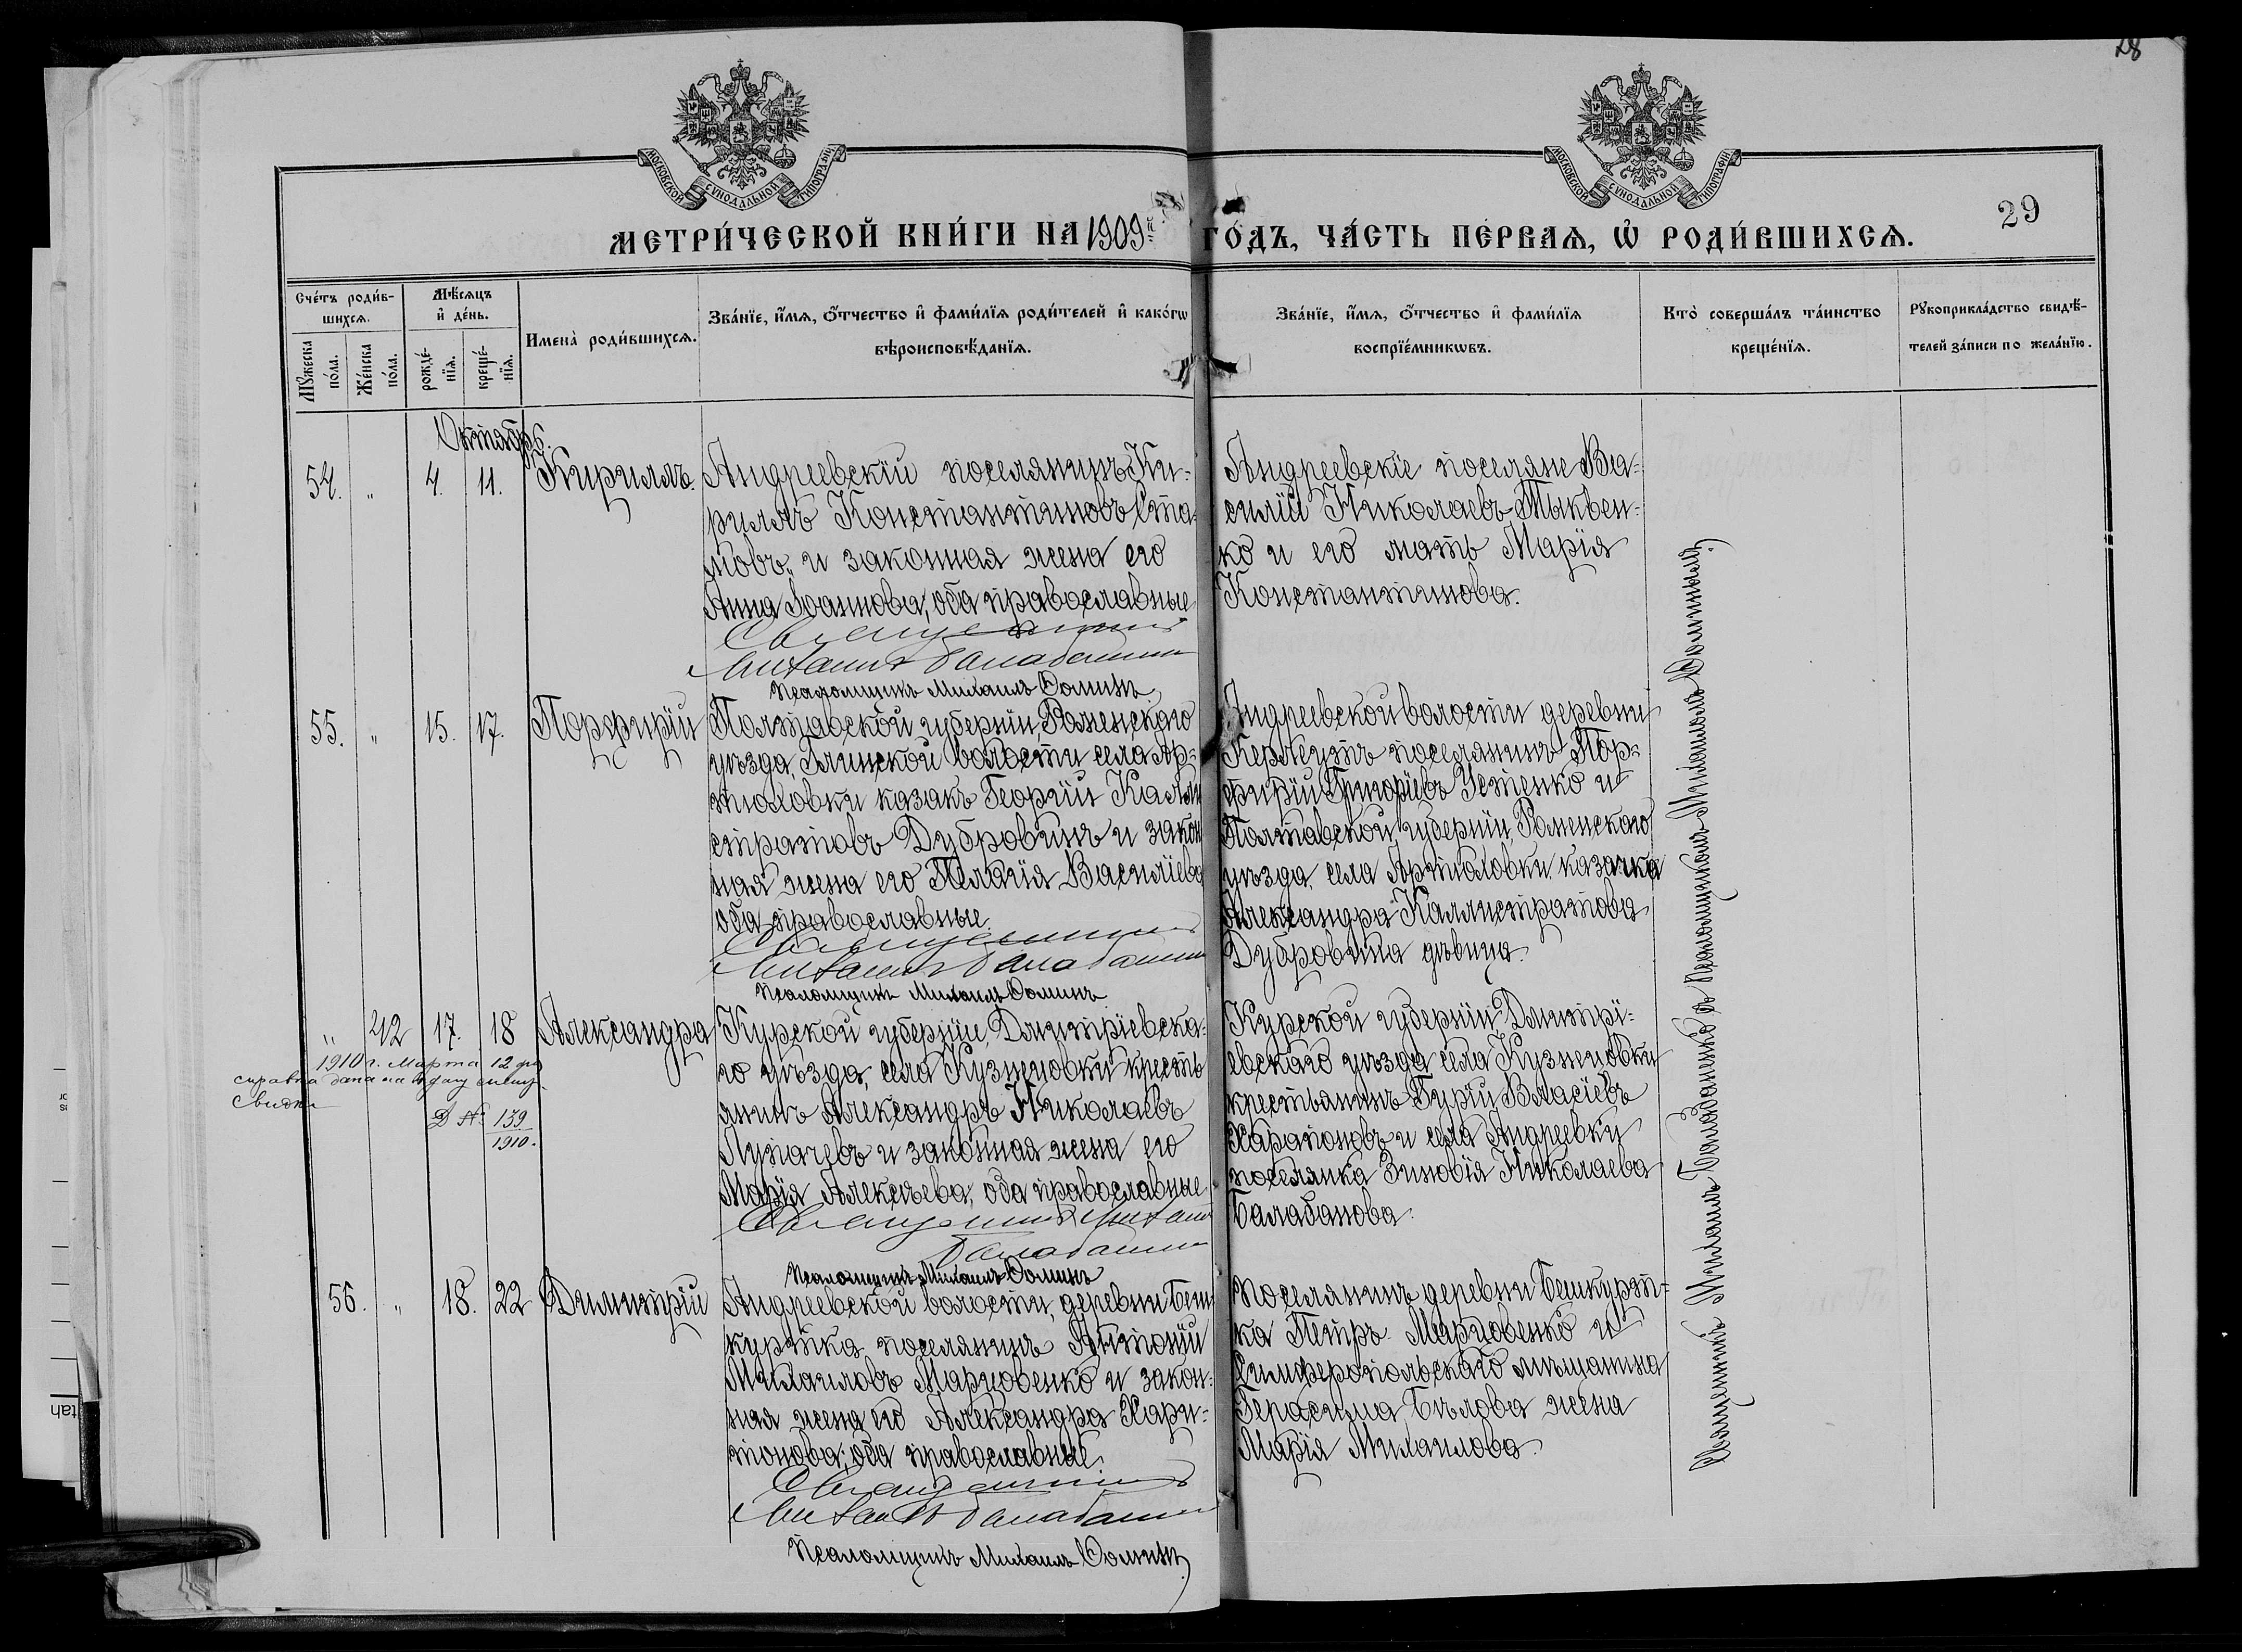 28
МОСКОВСКОЙ СУНОДАЛЬНОЙ ТИПОГРАФІИ
МОСКОВСКОЙ СУНОДАЛЬНОЙ ТИПОГРАФІИ
29
МЕТРИ́ЧЕСКОЙ КНИ́ГИ НА 1909й ГО́ДЪ, ЧА́СТЬ ПЕ́РВАѦ, Ѡ РОДИ́ВШИХСѦ.
Сче́тъ роди́в-
шихсѧ.
Мꙋ́жеска по́ла.
Же́нска по́ла.
Мѣ́сѧцъ
и҆ де́нь.
рожде́-
нїѧ.
креще́-
нїѧ.
Имена̀ роди́вшихсѧ.
Зва́нїе, и҆́мѧ, ѻ҆́тчество и҆ фами́лїѧ роди́телей и҆ како́гѡ
вѣроисповѣ́данїѧ.
Зва́нїе, и҆́мѧ, ѻ҆́тчество и҆ фами́лїѧ
воспрїе́мникѡвъ.
Кто̀ соверша́лъ та́инство
креще́нїѧ.
Рꙋкоприкла́дство свидѣ́-
телей за́писи по жела́нїю.
Октябрь.
54. " 4. 11. Кириллъ.
Андреевскій поселянинъ Ки-
риллъ Константиновъ Ста-
новъ, и законная жена его
Анна Іоаннова, оба православные
Священникъ
Михаилъ Балабаненко
Псаломщикъ Михаилъ Ѳоминъ
Андреевскіе поселяне Ва-
силій Николаевъ Тыквен-
ко и его мать Марія
Константинова.
55. " 15. 17. Порфирій
Полтавской губерніи, Роменскаго
уѣзда, Глинской волости села Ар-
тюховки казакъ Георгій Калли
стратовъ Дубровинъ и закон
ная жена его Пелагія Васильева
оба православные.
Священникъ
Михаилъ Балабаненко
Псаломщикъ Михаилъ Ѳоминъ
Андреевской волости деревни
Керлеутъ поселянинъ Пор-
фирій Григорьевъ Устенко и
Полтавской губерніи, Роменскаго
уѣзда, села Артюховки казачка
Александра Каллистратова
Дубровина дѣвица.
" 42 17. 18 Александра
1910 г. Марта 12 дня
справка дана на
Д № 139
1910.
Курской губерніи, Дмитріевска-
го уѣзда, села Кузнецовки кресть
янинъ Александръ Николаевъ
Лупачевъ и законная жена его
Марія Алексѣева, оба православные
Священникъ Михаилъ
Балабаненко
Псаломщикъ Михаилъ Ѳоминъ
Курской губерніи Дмитрі-
евскаго уѣзда села Кузнецовки
крестьянинъ Гурій Власіевъ
Харапоновъ и села Андреевки
поселянка Зиновія Николаева
Балабанова.
56. " 18. 22 Димитрій
Андреевской волости, деревни Беш
куртка поселянинъ Антоній
Михаиловъ Марцовенко и закон-
ная жена его Александра Хари-
тонова, оба православные.
Священникъ
Михаилъ Балабаненко
Псаломщикъ Михаилъ Ѳоминъ
Поселянинъ деревни Бешкурт-
ка Петръ Марцовенко и
Симферопольскаго мѣщанина
Герасима Бѣлова жена
Марія Михаилова.
Священникъ Михаилъ Балабаненко съ Псаломщикомъ Михаиломъ Ѳоминымъ